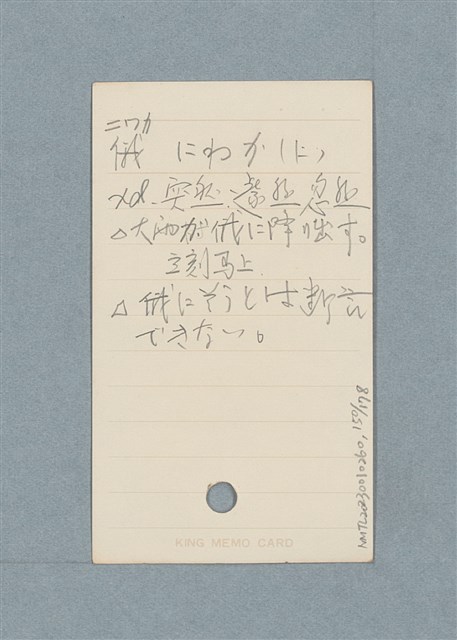 ニワカ
俄 にわか(に)
ad. 突然、驀然 忽然
△大雨が俄に降出す。
立刻馬上.
△俄にそうとは断言
できない。
KING MEMO CARD
NMTL20250010360, 150/178